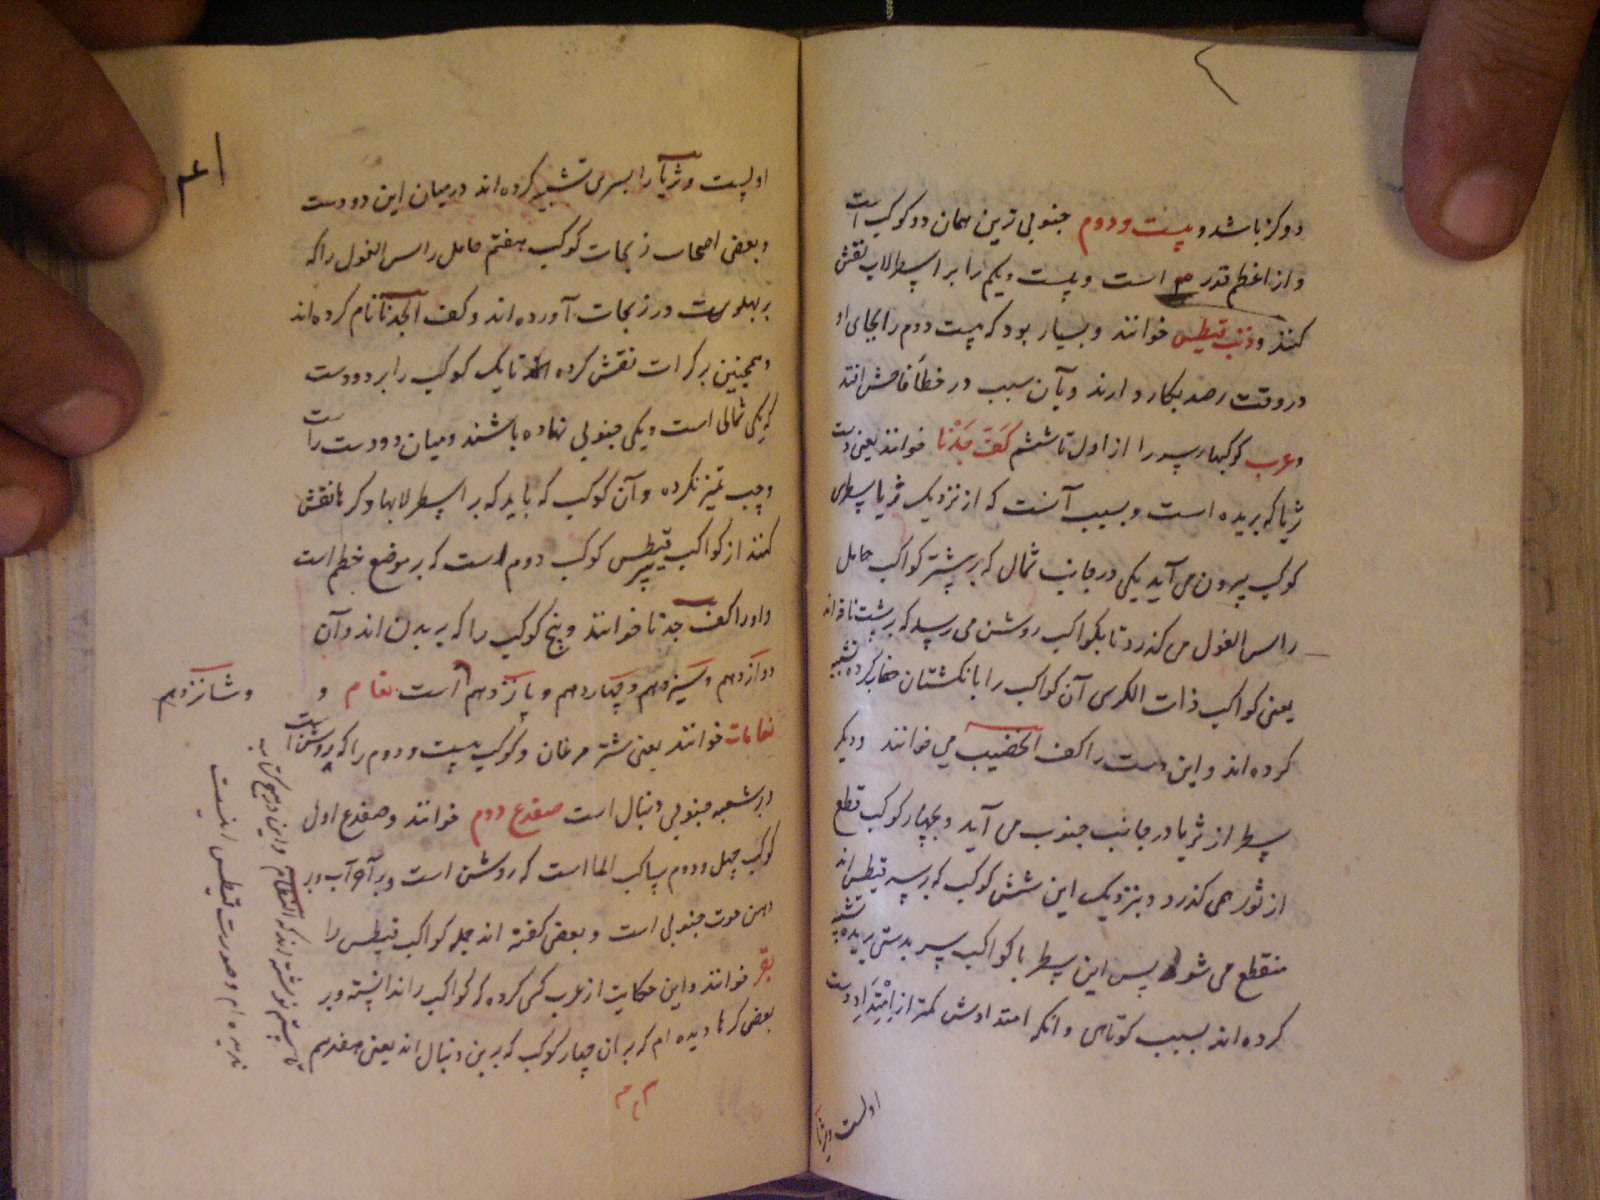 دو کز باشد و بیست و دوم جنوبی ترین همان دو کوکب است
و از اعظم قدر است و بیست و یکم را بر اسطرلاب نقش
کنند و ذنب قیطس خوانند و بسیار بود که بیست دوم را بجای او
در وقت رصد بکار دارند و بآن سبب در خطأ فاحش افتند
و عرب کوکبهار سر را از اول تا ششم کف جذنا خوانند یعنی دست
ثریا که بریده است و سبب آنست که از نزدیک ثریا سطری
کوکب بیرون می آید یکی در جانب شمال که بیشتر کواکب حامل
راس الغول می گذرد تا بکواکب روشن می رسد که بر پشت ناقه اند
یعنی کواکب ذات الکرسی آن کواکب را بانگشتان حنا کرده تشبیه
کرده اند و این دست را کف الخضیب می خوانند و دیگر
سطر از ثریا در جانب جنوب می آید و بچهار کوکب قطع
از ثور همی گذرد و بنزدیک این شش کوکب که بر سر قیطس اند
منقطع می شود پس این سطر با کواکب سر بدستی بریده تشبیه
کرده اند بسبب کوتاهی و آنکه امتدادش کمتر از امتداد دست
اولست و ثریا
اع
اولست و ثریا را بسری تشبیه کرده اند در میان این دو دست
و بعضی اصحاب زیجات کوکب هفتم حامل راس الغول را که
بر پهلوست در زیجات آورده اند و کف الجذنا نام کرده اند
و همچنین بر کرات نقش کرده اند تا یک کوکب را بر دو دست
که یکی شمالی است و یکی جنوبی نهاده باشند و میان دو دست راست
و چپ تمیز نکرده و آن کوکب که باید که بر اسطرلابها و کرها نقش
کنند از کواکب قیطس کوکب دوم است که بر موضع خطم است
و او را کف جذنا خوانند و پنج کوکب را که بر بدن اند و آن
دوازدهم و سیزدهم و چهاردهم و پانزدهم است نعام و
و شانزدهم
نعامات خوانند یعنی شتر مرغان و کوکب بیست و دوم را که روشن است
و بر شعبه جنوبی دنبال است ضفدع دوم خوانند و ضفدع اول
کوکب چهل و دوم ساکب الما است که روشن است و بر آخر آب و بر
دهن حوت جنوبی است و بعضی گفته اند جمله کواکب قیطس را
بقر خوانند و این حکایت از عرب کسی کرده که کواکب را ندانسته و بر
بعضی کرها دیده ام که بر آن چهار کوکب که بر بن دنبال اند یعنی هفدهم
تا بیستم نوشته اند که النظام و این در هیچ کتاب
ندیده ام و صورت قیطس اینست